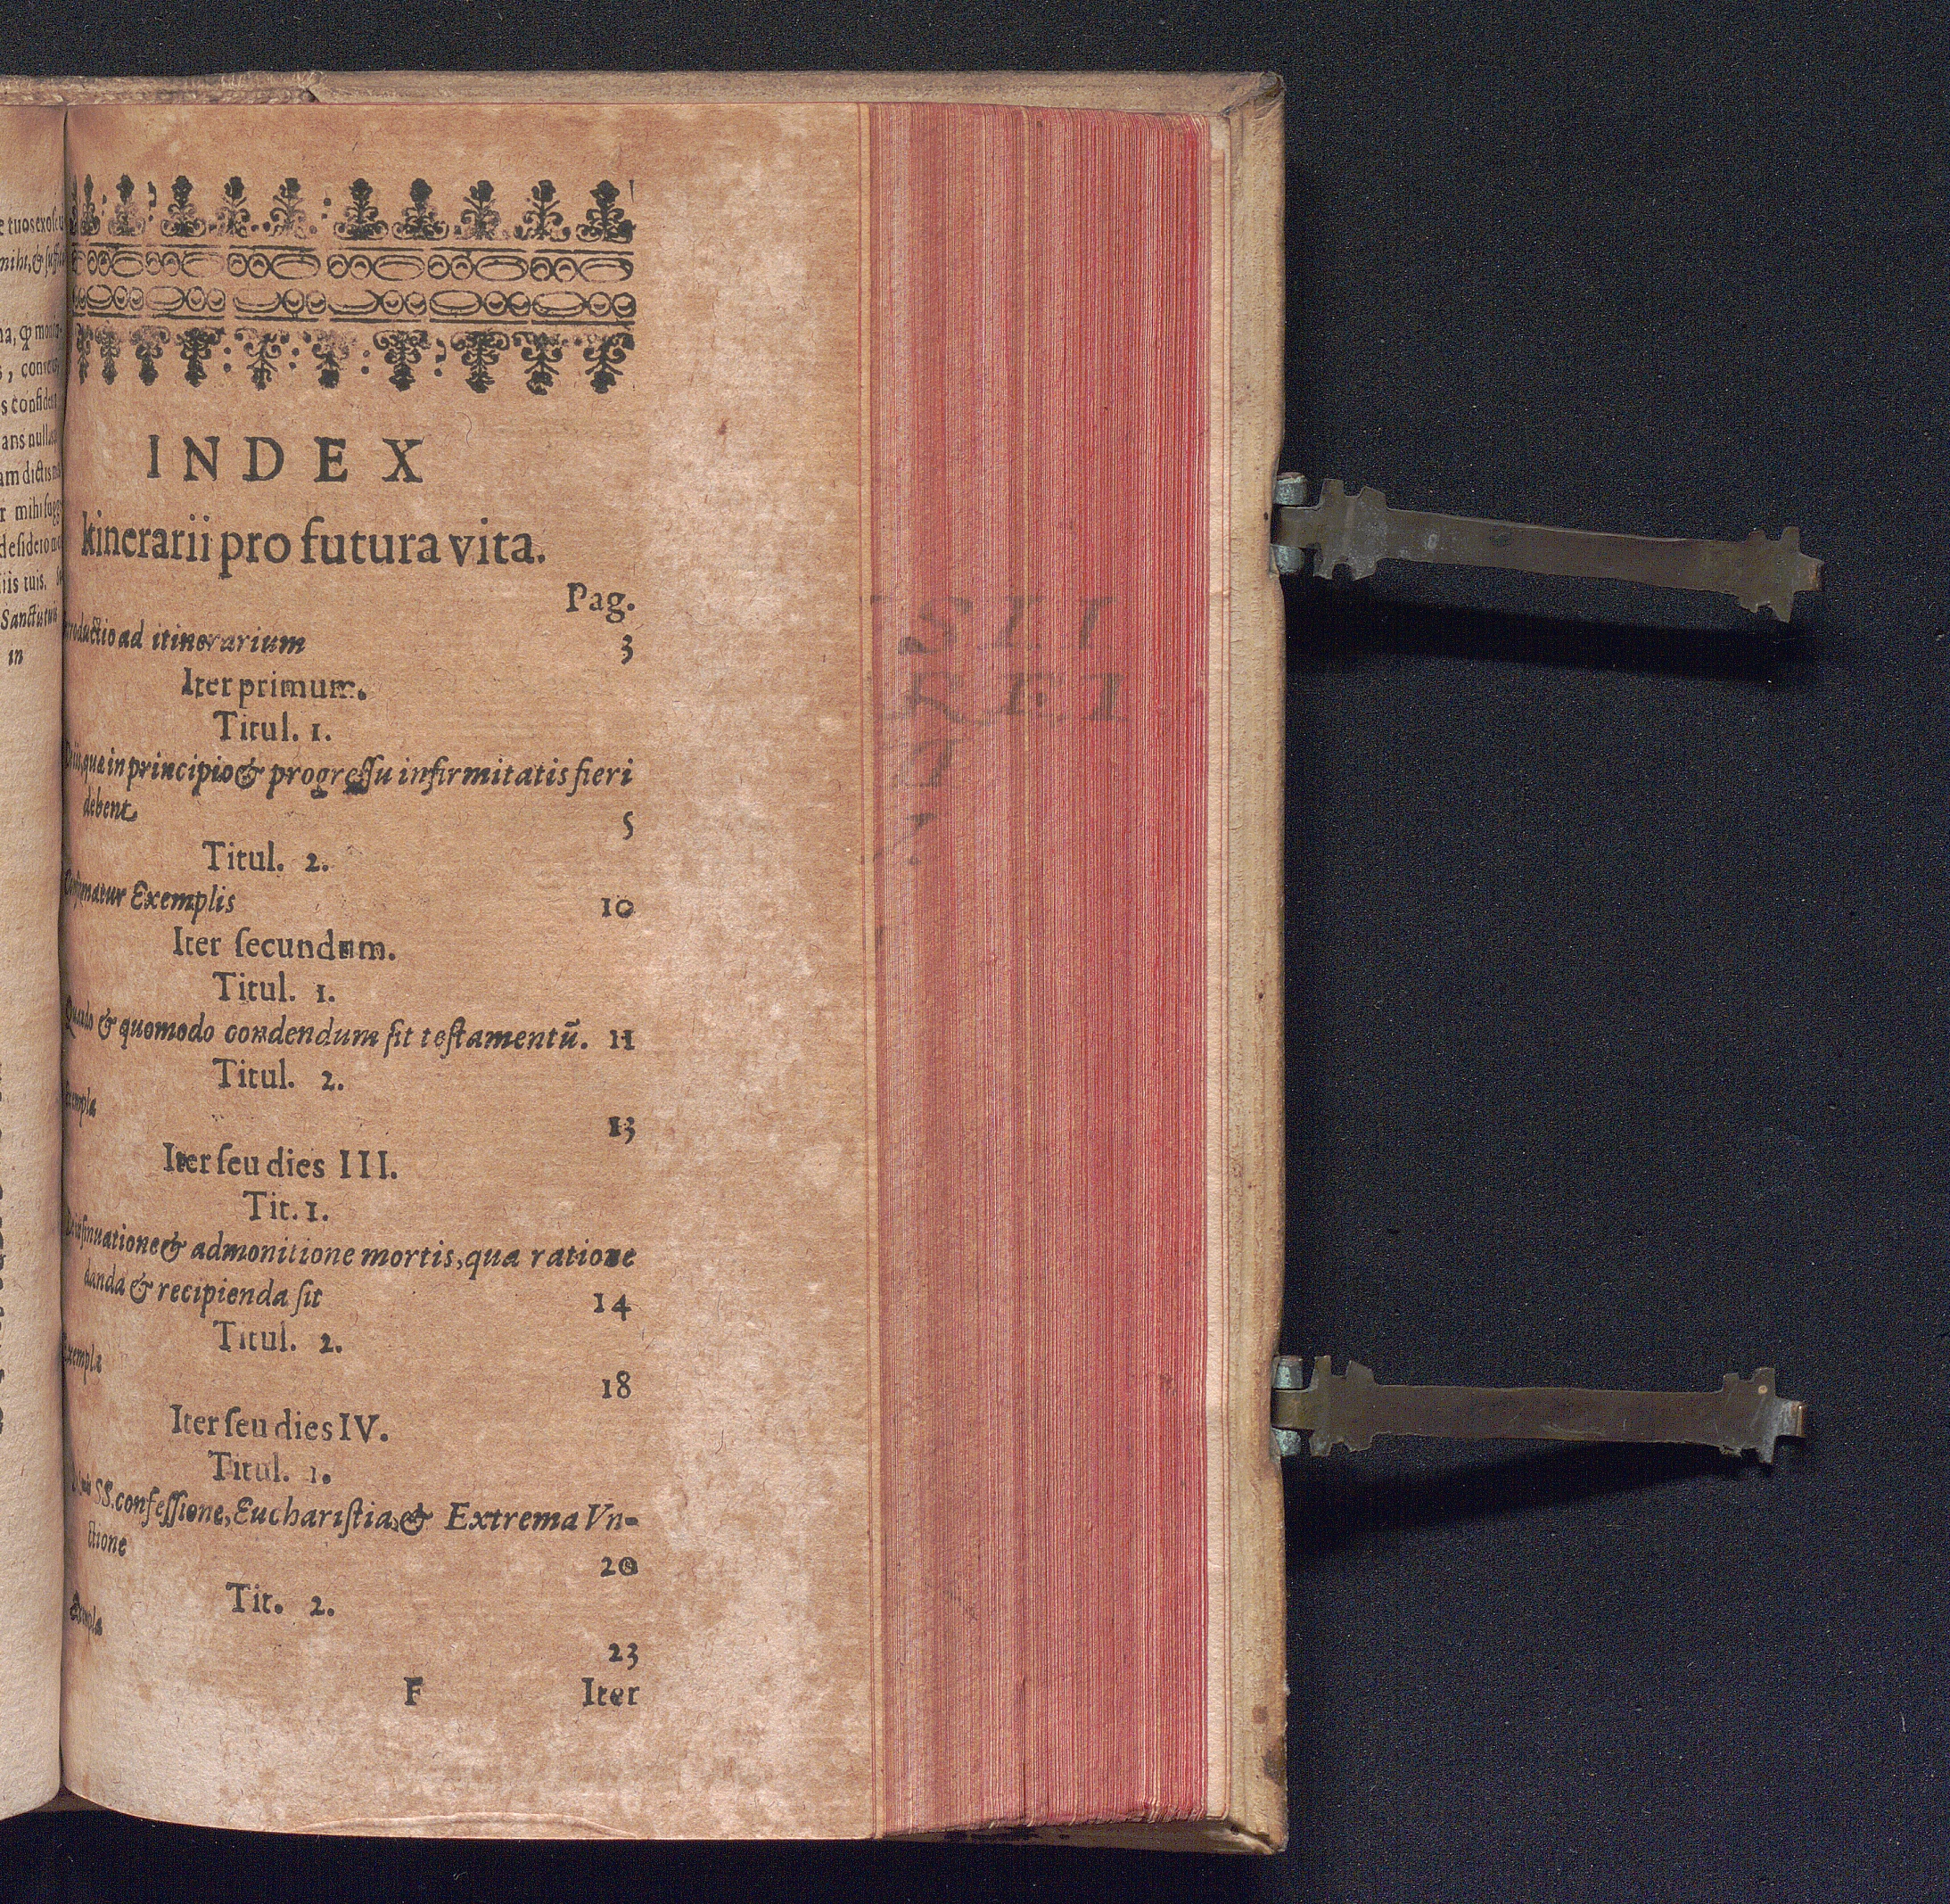 e tuos exoſcu
mihi, & ſuffi
na, ꝙ moni-
s, conver
s confiden
ans null
am dictis
r mihi ſugg
deſidero
iis tuis.
Sanctu tuũ
in
INDEX
Itinerarii pro futura vita.
Pag.
troductio ad itinerarium 3
Iter primum.
Titul. 1.
De iis, quæ in principio & progreſſu infirmitatis fieri
debent 5
Titul. 2.
Confirmatur Exemplis 10
Iter ſecundum.
Titul. 1.
Quando & quomodo condendum ſit teſtamentũ. 11
Titul. 2.
Exempla 13
Iter ſeu dies III.
Tit. 1.
De inſinuatione & admonitione mortis, qua ratione
danda & recipienda ſit 14
Titul. 2.
Exempla 18
Iter ſeu dies IV.
Titul. 1.
SS. confeſſione, Euchariſtia, & Extrema Vn-
ctione 20
Tit. 2.
Exempla 23
F Iter
SII
REI